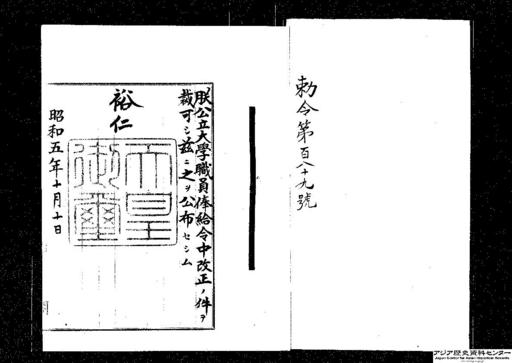 勅令第百八十九號
朕公立大學職員俸給令中改正ノ件ヲ
裁可シ茲ニ之ヲ公布セシム
裕仁
天皇
御璽
昭和五年十月十日
アジア歴史資料センター
Japan Center for Asian Historical Records